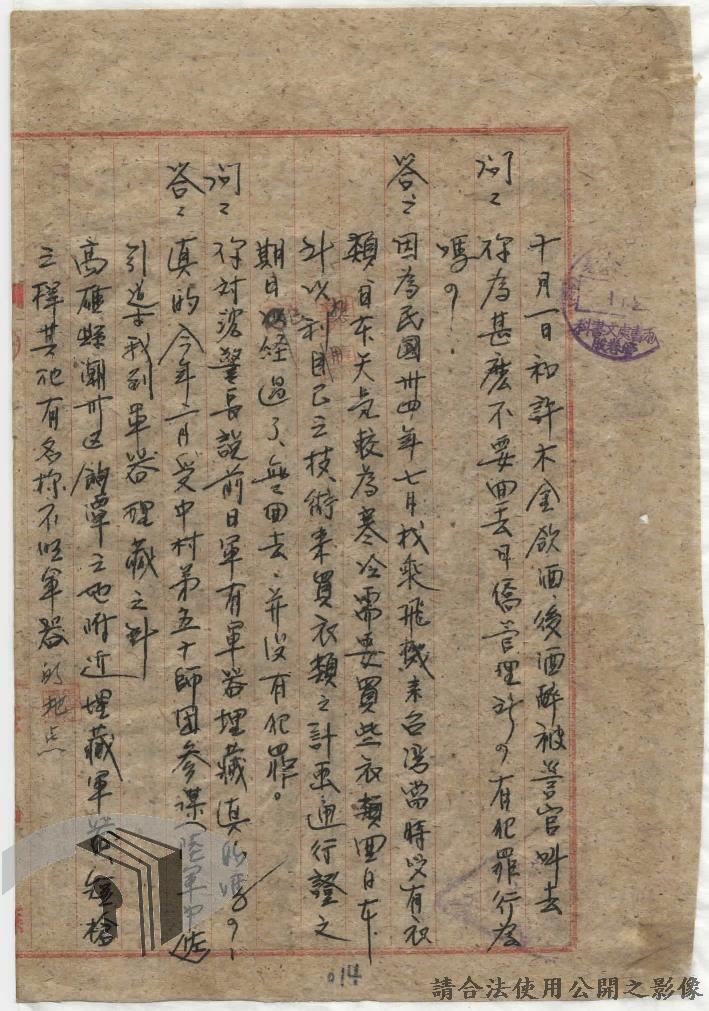 十月一日和許木金飲酒後酒醉被警官叫去
問：你為甚麼不要回去日僑管理所？有犯罪行為
嗎？
答：因為民國卅四年七月我乘飛機來台灣當時沒有衣
類日本天氣較為寒冷需要買些衣類回日本
所以利用自己之技術來買衣類之計画通行證之
期日已經過了、無回去、并沒有犯罪。
問：你対沈警長說前日軍有軍器埋藏真的嗎？
答：真的今年二月受中村第五十師團參謀（陸軍中佐
引導我到軍器埋藏之所
高雄縣潮州區餉潭之地附近埋藏軍器、短槍
之彈其他有名称不明軍器的地点
014
請合法使用公開之影像